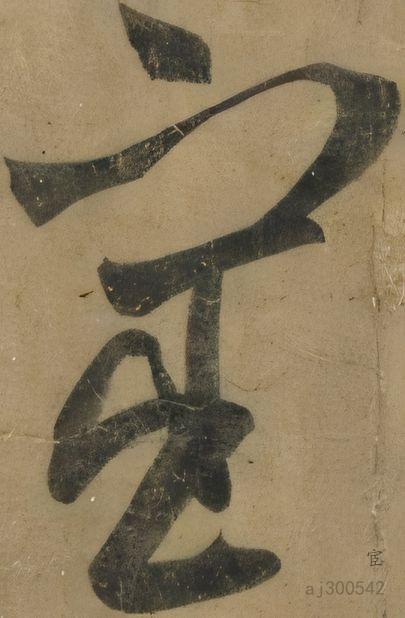 宦
宦
aj300542